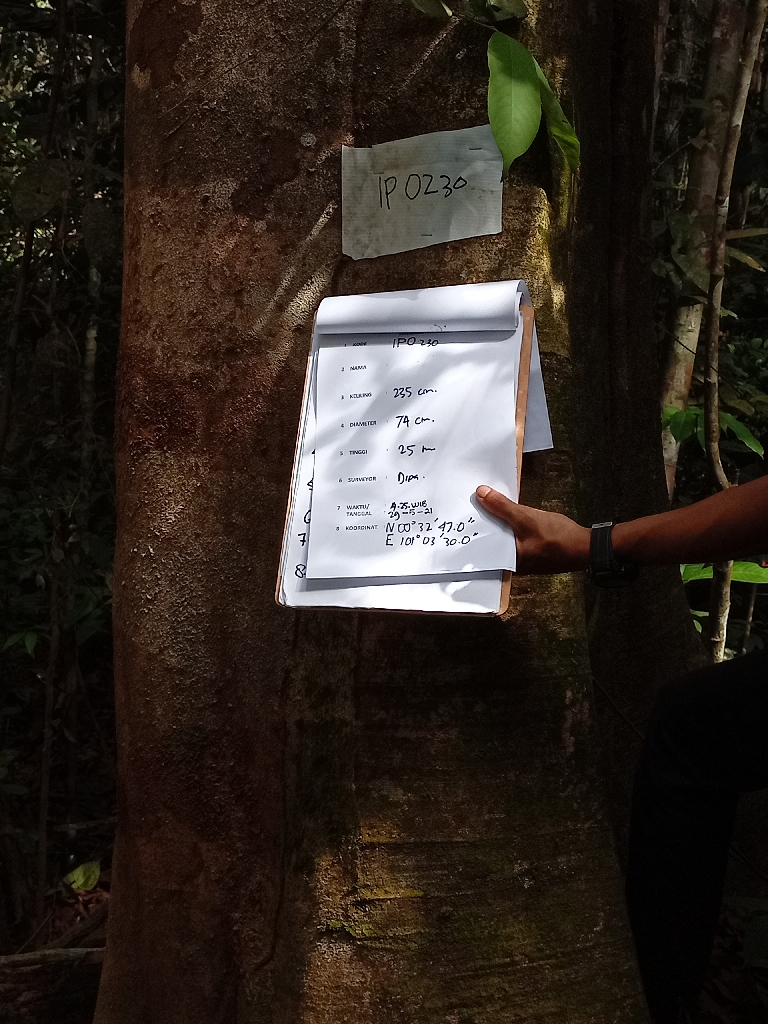 IP 0230
1 KODE : IPO 230
2 NAMA :
3 KELILING : 235 cm.
4 DIAMETER : 74 cm.
5 TINGGI : 25 m
6 SURVEYOR : Dipa.
7 WAKTU/ TANGGAL :
8 KOORDINAT : N 00° 32' 47.0"
E 101° 03' 30.0"
7
8